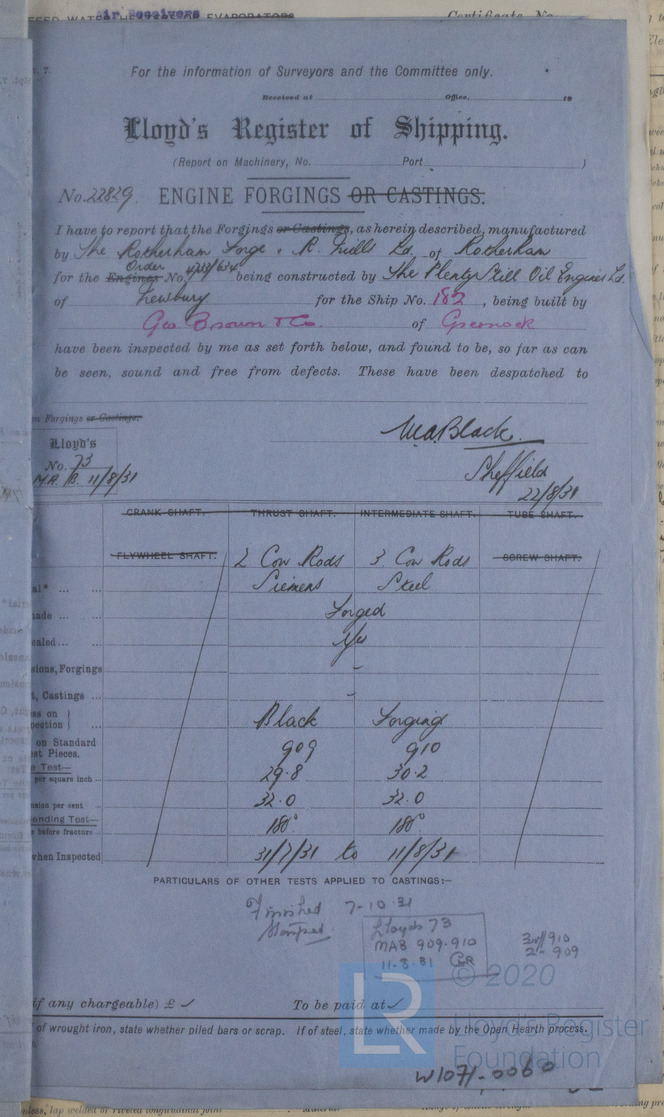 Air Receivers
FEED WATER EVAPORATORS
Certificate No.
For the information of Surveyors and the Committee only.
Received at Office, 19
Lloyd's Register of Shipping.
(Report on Machinery, No. Port )
No. 22829. ENGINE FORGINGS OR CASTINGS.
I have to report that the Forgings or Castings, as herein described, manufactured
by The Rotherham Forge & R. Mills Ld. of Rotherham
Order
for the Engines No. being constructed by The Plenty Still Oil Engines Ld.
of Newbury for the Ship No. 182, being built by
Geo. Brown & Co. of Greenock
have been inspected by me as set forth below, and found to be, so far as can
be seen, sound and free from defects. These have been despatched to
Forgings or Castings.
M.A. Black.
Lloyd's
No. 73
M.A.B. 11/8/31
Sheffield
22/8/31
CRANK SHAFT. THRUST SHAFT. INTERMEDIATE SHAFT. TUBE SHAFT.
FLYWHEEL SHAFT. 2 Con Rods 3 Con Rods SCREW SHAFT.
Siemens Steel
Forged
Yes
sions, Forgings -
, Castings ... -
Black Forging
on Standard
est Pieces. 909 910
Test—
per square inch 29.8 30.2
nsion per cent 32.0 32.0
ending Test—
before fracture 180° 180°
when Inspected 31/7/31 to 11/8/31
PARTICULARS OF OTHER TESTS APPLIED TO CASTINGS:—
Finished 7-10-31
Stamped
Lloyds 73
MAB 909.910
11-8-31
3 of 910
2 - 909
© 2020
if any chargeable) £ To be paid at
of wrought iron, state whether piled bars or scrap. If of steel, state whether made by the Open Hearth process.
LR
Lloyd's Register
Foundation
W1071-0060